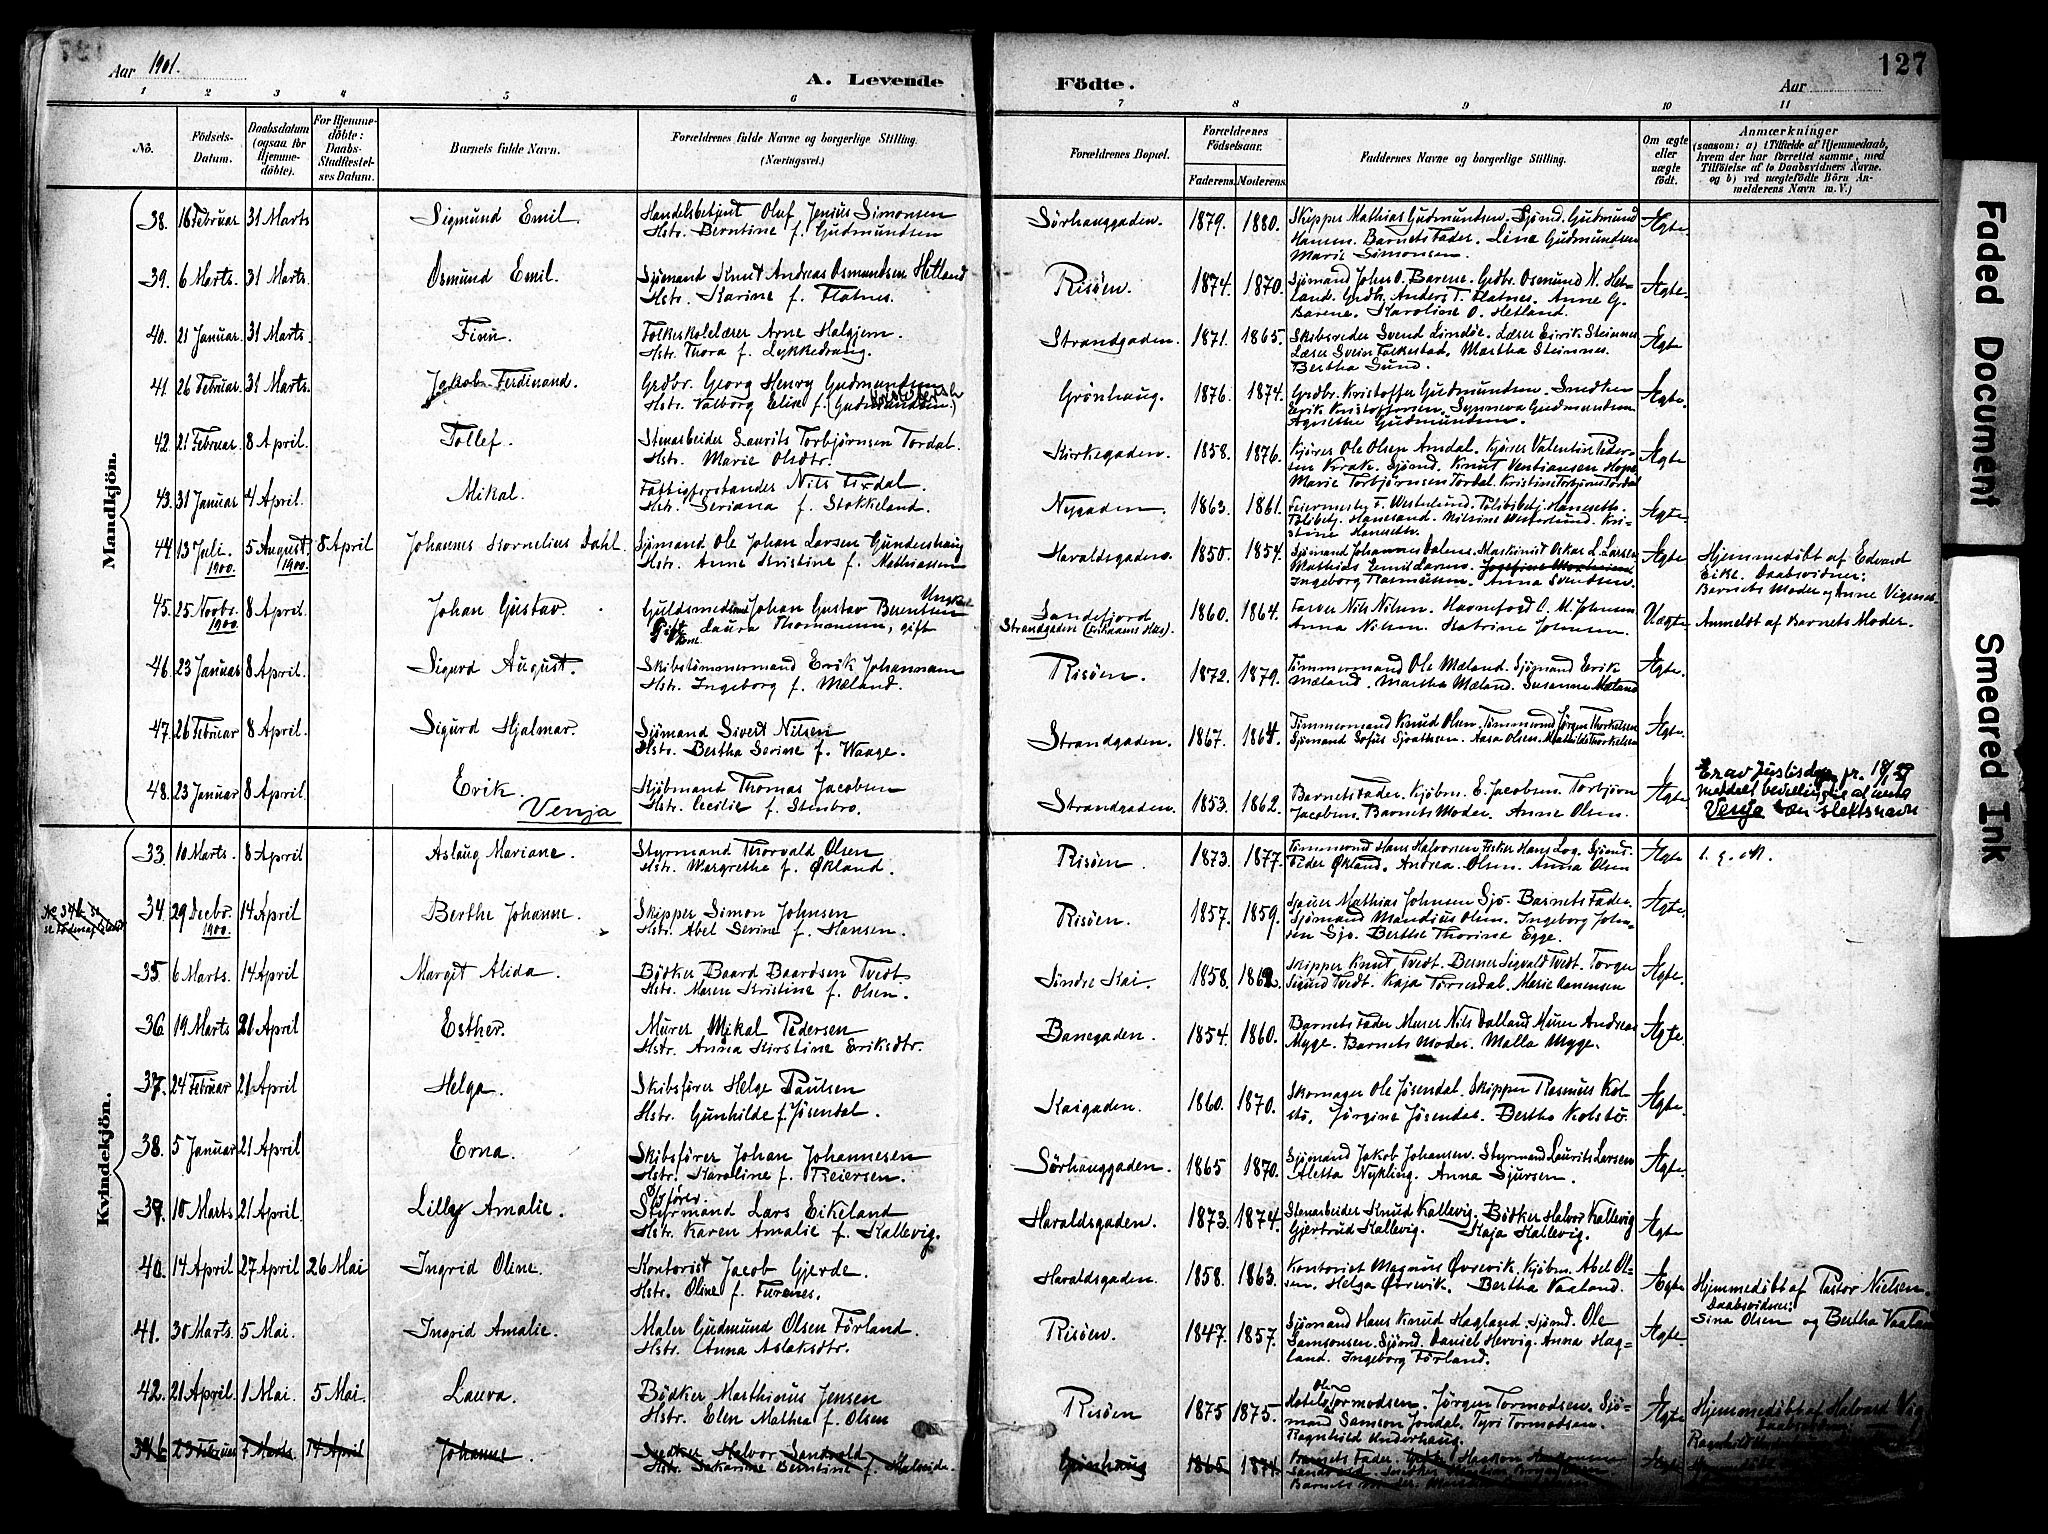 Aar 1901.
A. Levende
1 2 3 4 5 6
No. Födsels-Datum. Daabsdatum (ogsaa for Hjemmedöbte). For Hjemmedöbte: Daabs-Stadfæstelses Datum. Barnets fulde Navn. Forældrenes fulde Navne og borgerlige Stilling. (Næringsvei.)
Födte.
127
Aar
7 8 9 10 11
Forældrenes Bopæl. Forældrenes Födselsaar. Faderens. Moderens. Faddernes Navne og borgerlige Stilling. Om ægte eller uægte födt. Anmærkninger (saasom: a) i Tilfælde af Hjemmedaab, hvem der har forrettet samme, med Tilföielse af to Daabsvidners Navne. og b) ved uægtefödte Börn Anmelderens Navn m. V.)
Mandkjön.
38. 16 Februar 31 Marts Sigmund Emil Handelsbetjent Oluf Jenius Simonsen Sørhauggaden. 1879. 1880. Skipper Mathias Gudmundsen. Sjömd. Gudmund Ægte.
Hstr. Berntine f. Gudmundsen Hansen. Barnets Fader. Lina Gudmundsen
Marie Simonsen.
39. 6 Marts. 31 Marts. Osmund Emil. Sjömand Knut Andreas Osmundsen Hetland Risöen. 1874. 1870. Sjömand John O. Barene. Grdbr. Osmund N. Het- Ægte.
Hstr. Karine f. Flatnes. land. Grdbr. Anders T. Flatnes. Anne G.
Barene. Karoline O. Hetland.
40. 21 Januar. 31 Marts. Finn. Folkeskolelærer Arne Halgjem. Strandgaden. 1871. 1865. Skibsreder Svend Lindöe. Lærer Eirik Steinnes Ægte
Hstr. Thora f. Lykkedrang. Lærer Svein Falkestad. Martha Steinnes.
Bertha Sund.
41. 26 Februar. 31 Marts. Jakob Ferdinand. Grdbr. Georg Henry Gudmundsen Grönhaug. 1876. 1874. Grdbr. Kristoffer Gudmundsen. Smedken Ægte.
Hstr. Valborg Elise f. (Gudmundsen) Erik Kristoffersen. Synneva Gudmundsen
Agnethe Gudmundsen.
42. 21 Februar. 8 April. Tollef. Stenarbeider Laurits Torbjørnsen Tordal. Kirkegaden. 1858. 1876. Kjörer Ole Olsen Amdal. Kjörer Valentin Peder- Ægte
Hstr. Marie Olsdtr. sen Krak. Sjömd. Knut Ventiansen Hope
Marie Torbjørnsen Tordal. Kristine Torbjørns Tordal
43. 31 Januar 4 April. Mikal. Fattigforstander Nils Tordal. Nygaden. 1863. 1861. Feiermester F. Westerlund. Politibetj. Haneseth. Ægte.
Hstr. Seriana f. Stokkeland. Politbetj. Hanesand. Nilsine Westerlund. Kri-
stine Haneseth.
44. 13 Juli 1900. 5 August 1900. 8 April Johannes Kornelius Dahl. Sjömand Ole Johan Larsen Gundershaug Haraldsgaden. 1850. 1854. Sjömand Johannes Dalnes. Maskinist Oskar L. Larsen Ægte Hjemmedöbt af Edvard
Hstr. Anne Kristine f. Mathiassen Mathias Emil Larsen. Eike. Daabsvidner:
Ingeborg Rasmussen. Anna Svendsen. Barnets Moder og Anne Vignes.
45. 25 Novbr. 1900. 8 April. Johan Gustav. Guldsmed Johan Gustav Berentsen Ungkar Sandefjord 1860. 1864. Farver Nils Nilsen. Havnefoged C. M. Johnsen Uægte Anmeldt af Barnets Moder.
Gift Laura Thomassen, gift Strandgaden (Enkedaams Hus). Anna Nilsen. Katrine Johnsen.
46. 23 Januar 8 April. Sigurd August. Skibstömmermand Erik Johannesen Risöen. 1872. 1879. Tömmermand Ole Mæland. Sjömand Erik Ægte.
Hstr. Ingeborg f. Mæland. Mæland. Martha Mæland. Susanne Mæland
47. 26 Februar 8 April. Sigurd Hjalmar. Sjömand Sivert Nilsen Strandgaden. 1867. 1864. Tömmermand Knud Olsen. Tömmermd Jørgen Thorkelsen Ægte.
Hstr. Bertha Serine f. Waage. Sjömand Sofus Sjoathsen. Aasa Olsen. Mathilde Thorkelsen
48. 23 Januar 8 April. Erik. Kjöbmand Thomas Jacobsen Strandgaden. 1853. 1862. Barnets Fader. Kjöbm. E. Jacobsen. Torbjørn Ægte Er av Justisdep. fr. 18/1 27
Venja Hstr. Cecilie f. Stenbro. Jacobsen. Barnets Moder. Anne Olsen. meddelt bevilling til at anta
Venja som slektsnavn
Kvindekjön.
33. 10 Marts. 8 April Aslaug Mariane. Styrmand Thorvald Olsen Risöen. 1873. 1877. Tömmermd Hans Halvorsen. Fisker Hans Log. Sjömd. Ægte
Hstr. Margrethe f. Ökland. Peder Ökland. Andrea Olsen. Anna Olsen
34. 29 Decbr. 1900. 14 April Berthe Johanne. Skipper Simon Johnsen Risöen. 1857. 1859. Mathias Johnsen Sjo. Barnets Fader. Ægte.
Hstr. Abel Serine f. Hansen. Sjömand Mandius Olsen. Ingeborg John-
sen Sjo. Berthe Thorine Egge.
35 6 Marts. 14 April Margit Alida. Bödker Baard Baardsen Tvedt. Söndre Kai. 1858. 1862. Skipper Knut Tvedt. Berner Sigvald Tvedt. Torger Ægte.
Hstr. Maren Kristine f. Olsen. Sigurd Tvedt. Kaja Torresdal. Marie Aanensen
36 19 Marts 21 April Esther. Murer Mikal Pedersen Banegaden. 1854. 1860. Barnets Fader Murer Nils Dalland Murer Andreas Ægte.
Hstr. Anna Kirstine Eriksdtr. Myge. Barnets Moder. Malla Myge.
37. 24 Februar 21 April Helga. Skibsförer Helge Paulsen Kaigaden. 1860. 1870. Skomager Ole Jösendal. Skipper Rasmus Kol- Ægte.
Hstr. Gunhilde f. Jösendal. stö. Jörgine Jösendal. Bertha Kolstö.
38. 5 Januar 21 April Erna. Skibsförer Johan Johannesen Sörhauggaden. 1865 1870. Sjömand Jakob Johansen. Styrmand Laurits Larsen Ægte.
Hstr. Karoline f. Reiersen. Aletta Nykling. Anna Sjursen.
39. 10 Marts 21 April Lilly Amalie. Styrmand Lars Eikeland Haraldsgaden. 1873. 1874. Stenarbeider Knud Kallevig. Bödker Halvor Kallevig Ægte
Hstr. Karen Amalie f. Kallevig. Gjertrud Kallevig. Kaja Kallevig.
40. 14 April 27 April 26 Mai Ingrid Oline. Kontorist Jacob Gjerde. Haraldsgaden. 1858. 1863. Kontorist Magnus Övrevik. Kjöbm. Abel Ol- Ægte Hjemmedöbt af Pastor Nielsen.
Hstr. Oline f. Furenes. sen. Helga Övrevik. Bertha Vaaland. Daabsvidner:
Sina Olsen og Bertha Vaaland
41. 30 Marts. 5 Mai. Ingrid Amalie. Maler Gudmund Olsen Förland. Risöen. 1847. 1857. Sjömand Hans Knud Hagland. Sjömd. Ole Ægte.
Hstr. Anna Aslaksdtr. Samsonsen. Sjömd. Daniel Hervig. Anna Hag-
land. Ingeborg Förland.
42. 21 April. 1 Mai. 5 Mai. Laura. Bödker Marthinus Jensen Risöen 1875 1875. Ole Tormodsen. Jörgen Tormodsen. Sjö- Ægte Hjemmedöbt af Halvard
Hstr. Elen Mathea f. Olsen mand Samson Jondal. Tyri Tormodsen.
Ragnhild Underhaug. Ragnhild
34b 23 Februar 7 Marts 14 April Johanne Bödker Halvor Sandvold Grönhaug 1865 1874 Barnets Fader.
Hstr. Sakarine Berntine f.
Faded Document
Smeared Ink